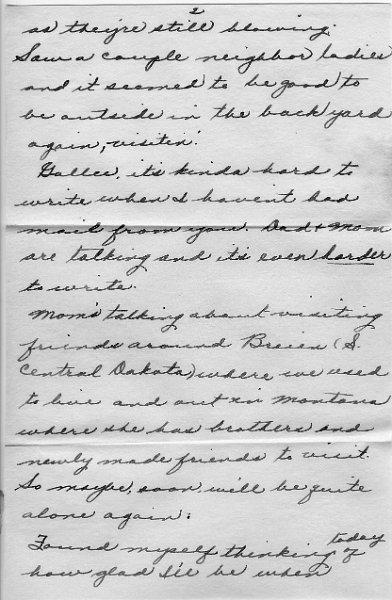 2
as they're still blowing.
Saw a couple neighbor ladies
and it seemed to be good to
be outside in the back yard
again, visitin'.
Gallee, it's kinda hard to
write when I haven't had
mail from you. Dad & Mom
are talking and it's even harder
to write.
Mom's talking about visiting
friends around Breien (S.
Central Dakota) where we used
to live and out in Montana
where she has brothers and
newly made friends to visit.
So maybe, soon, we'll be quite
alone again.
Found myself thinking today of
how glad I'll be when